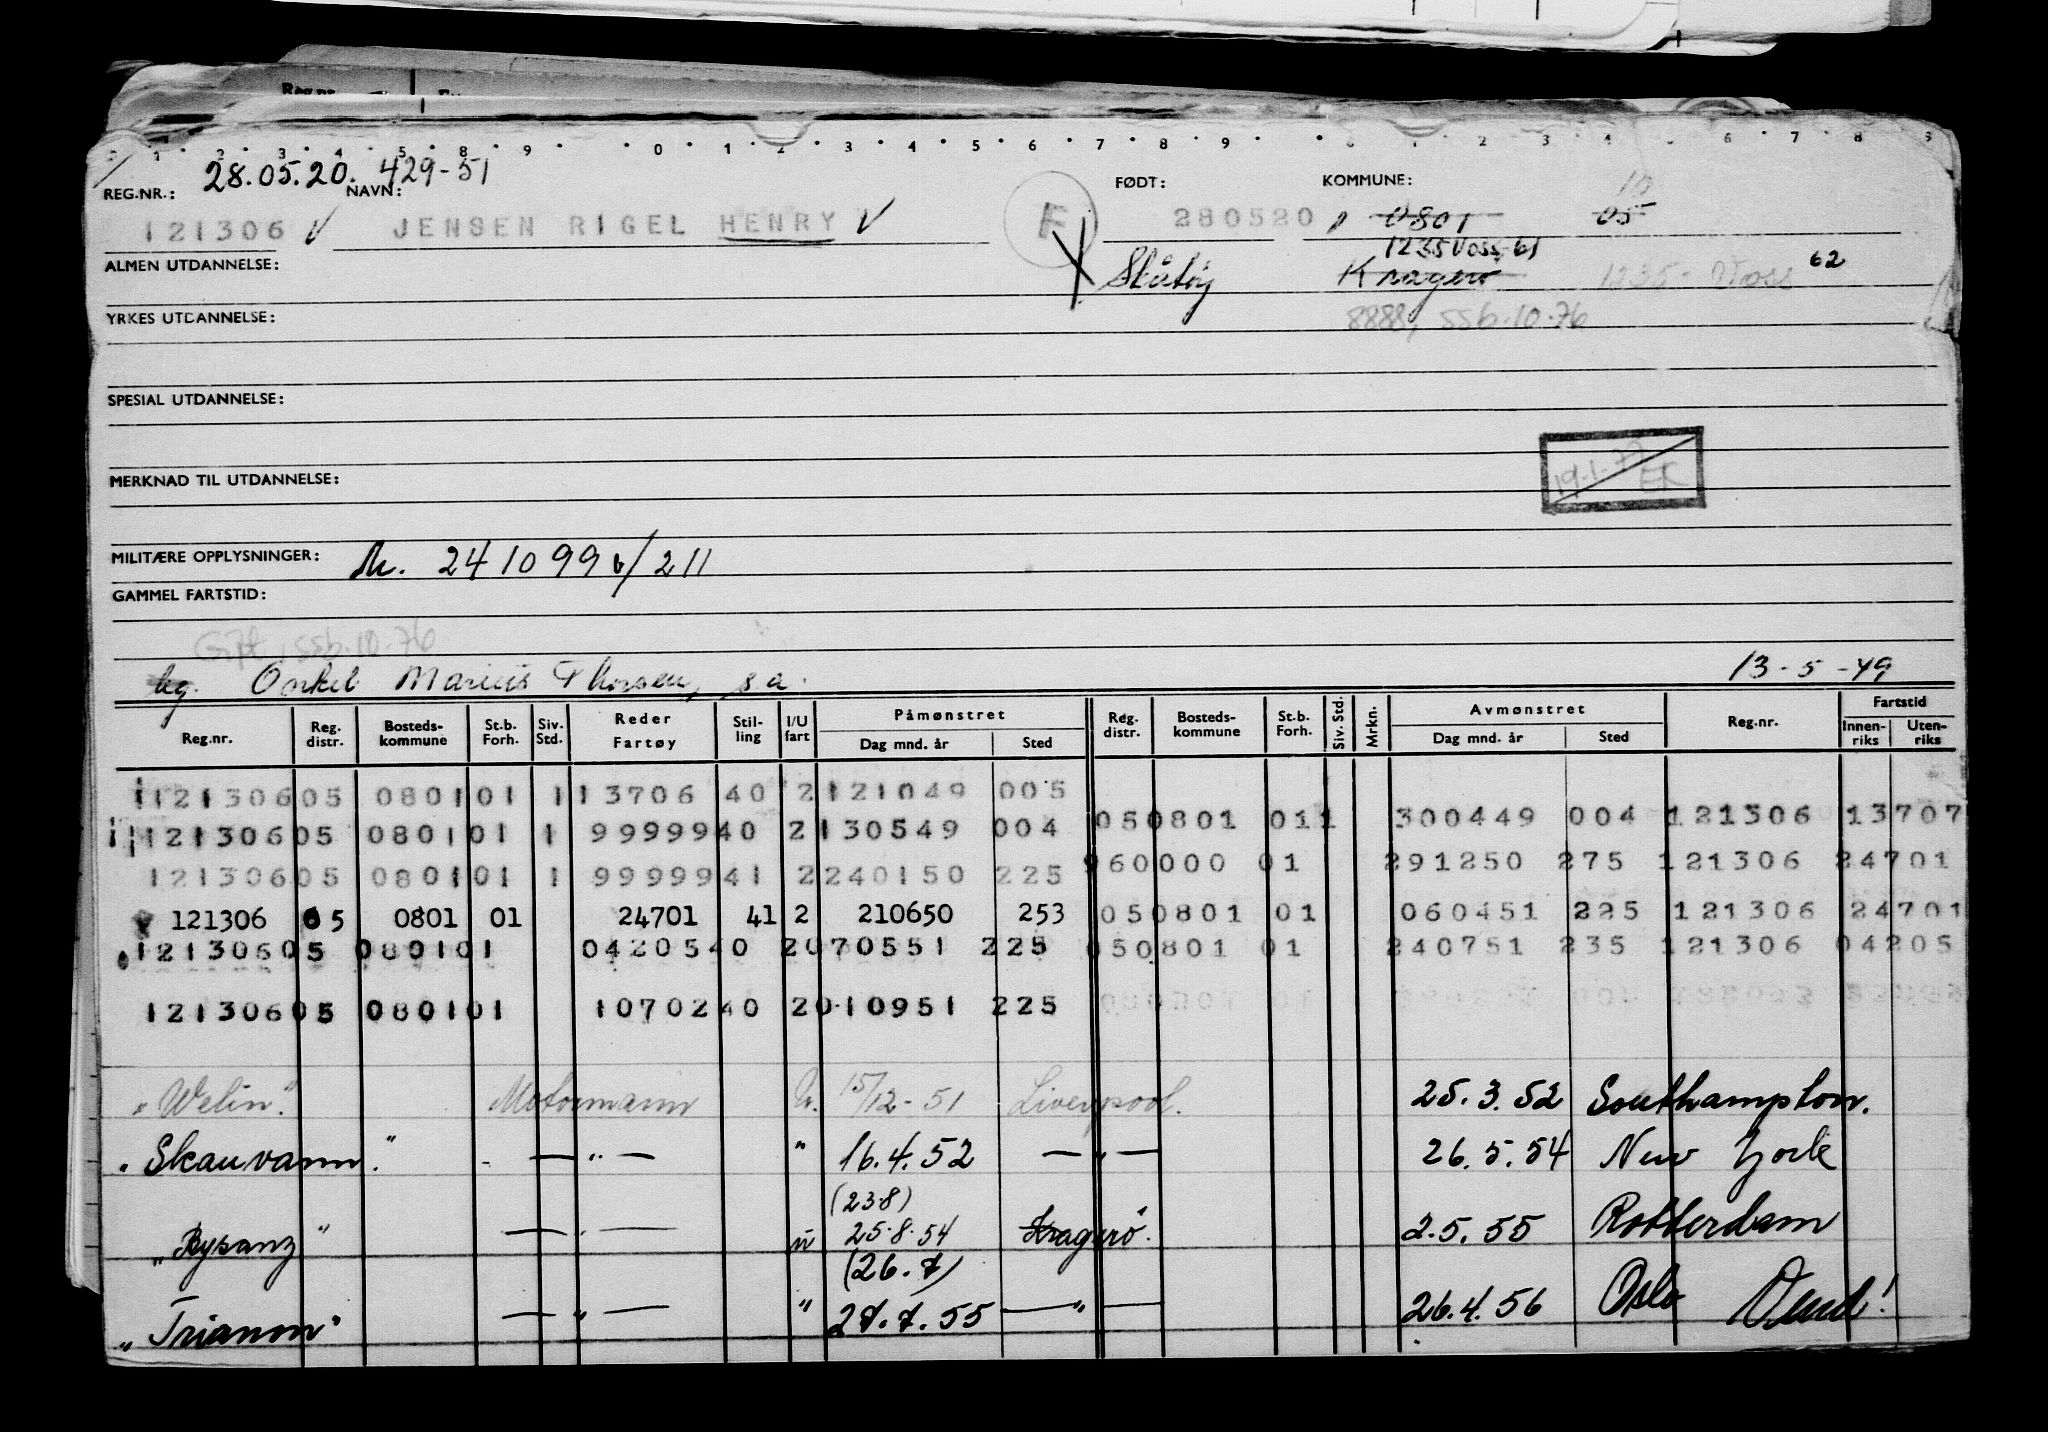 28.05.20. 429-51
REG.NR.: NAVN: FØDT: KOMMUNE: 10
121306 V JENSEN RIGEL HENRY V F 280520 0801 05
1235 Voss-61
ALMEN UTDANNELSE: Skåtøy Kragerø 1235- Voss 62
YRKES UTDANNELSE: 8888, ssb.10.76
SPESIAL UTDANNELSE:
19-1-77 EK
MERKNAD TIL UTDANNELSE:
MILITÆRE OPPLYSNINGER: Nr. 241099 6/211
GAMMEL FARTSTID:
Gift, ssb.10.76
bg. Onkel Marius Thorsen, s.a. 13-5-49
Reg.nr. Reg. distr. Bosteds-kommune St.b. Forh. Siv. Std. Reder Fartøy Stil-ling I/U fart Påmønstret Dag mnd. år Sted Reg. distr. Bosteds-kommune St.b. Forh. Siv. Std. Mrkn. Avmønstret Dag mnd. år Sted Reg.nr. Fartstid Innen-riks Uten-riks
121306 05 0801 01 1 13706 40 2 121049 005
050801 011 300449 004 121306 13707
121306 05 0801 01 1 99999 40 2 130549 004
960000 01 291250 275 121306 24701
121306 05 0801 01 1 99999 41 2 240150 225
121306 05 0801 01 24701 41 2 210650 253 050801 01 060451 225 121306 24701
121306 05 0801 01 04205 40 2 070551 225 050801 01 240751 235 121306 04205
121306 05 0801 01 10702 40 2 010951 225
"Welin". Motormann U. 15/12-51 Liverpool. 25.3.52 Southampton.
"Skauvann". — " — " 16.4.52 — " — 26.5.54 New York
(23.8)
"Bysanz" — " — u 25.8.54 Kragerø. 2.5.55 Rotterdam
(26.7)
"Trianon" — " — " 27.7.55 — " — 26.4.56 Oslo Vend!